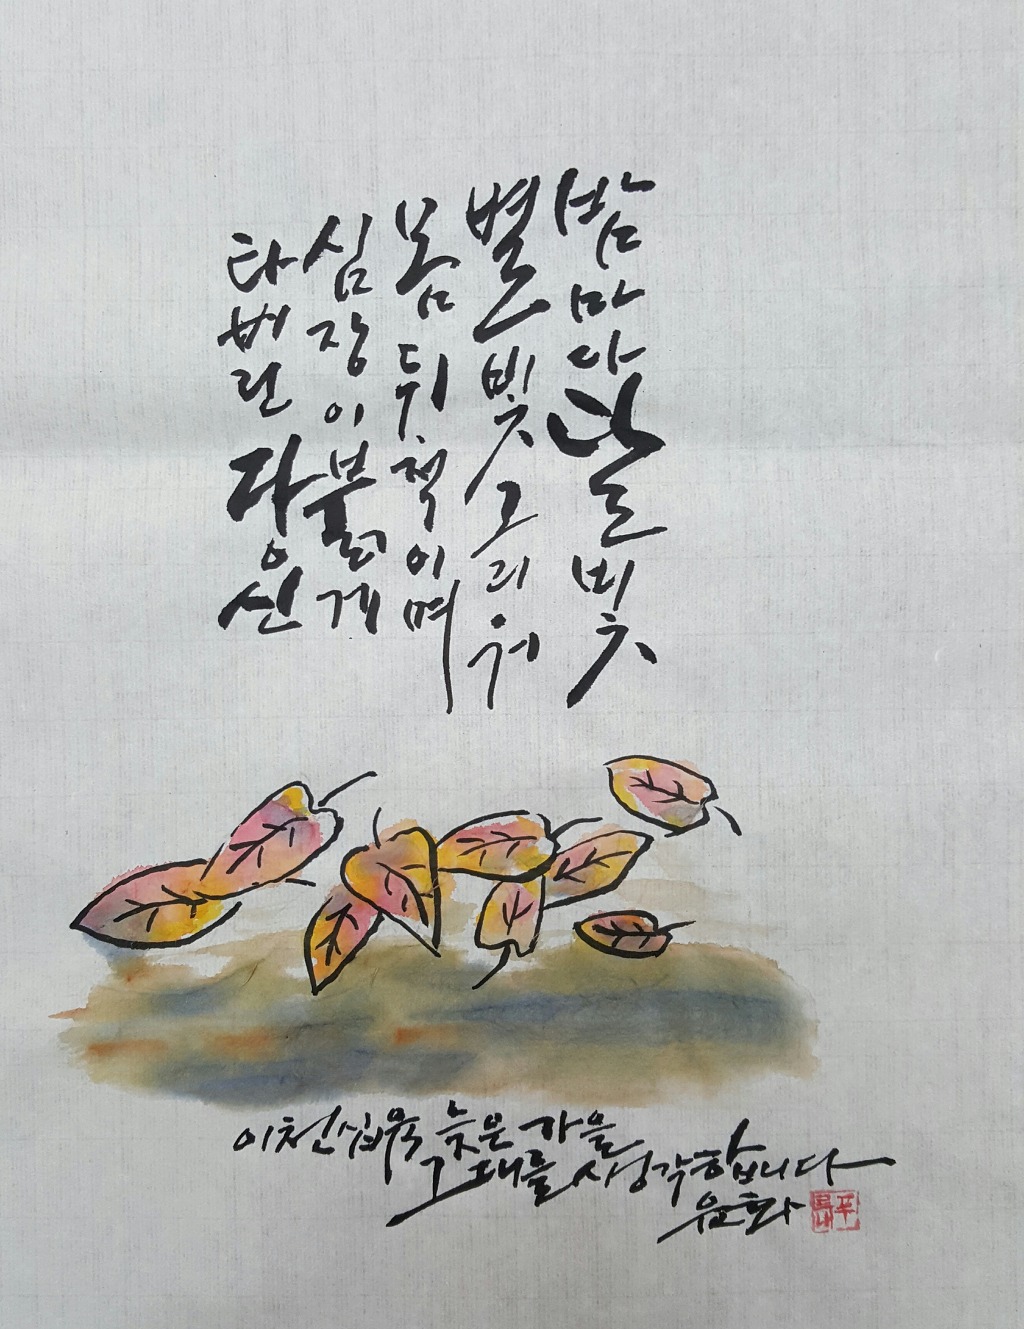 밤마다 달빛
별빛 그리워
몸 뒤척이며
심장이 붉게
타버린 당신
이천십육 늦은 가을
그대를 생각합니다
윤화